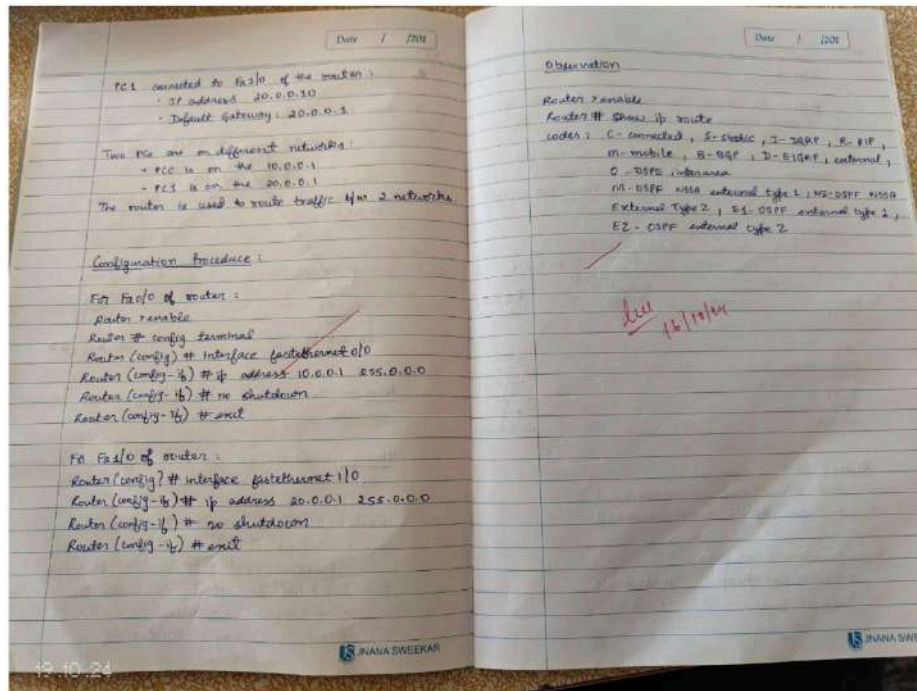 Date / /201
PC1 connected to Fa1/0 of the router :
· IP address 20.0.0.10
· Default Gateway : 20.0.0.1
Two PCs are on different networks :
- PC0 is on the 10.0.0.1
- PC1 is on the 20.0.0.1
The router is used to route traffic b/w 2 networks.
Configuration Procedure :
For Fa0/0 of router :
Router > enable
Router # config terminal
Router (config) # interface fastethernet 0/0
Router (config-if) # ip address 10.0.0.1 255.0.0.0
Router (config-if) # no shutdown
Router (config-if) # exit
For Fa1/0 of router :
Router (config) # interface fastethernet 1/0
Router (config-if) # ip address 20.0.0.1 255.0.0.0
Router (config-if) # no shutdown
Router (config-if) # exit
JNANA SWEEKAR
19.10.24
Date / /201
Observation
Router > enable
Router # show ip route
codes : C - connected , S - static , I - IGRP , R - RIP ,
m - mobile , B - BGP , D - EIGRP , external ,
O - OSPF , inter area
N1 - OSPF NSSA external type 1 , N2 - OSPF NSSA
External Type 2 , E1 - OSPF external type 1 ,
E2 - OSPF external type 2
16/10/24
JNANA SWE